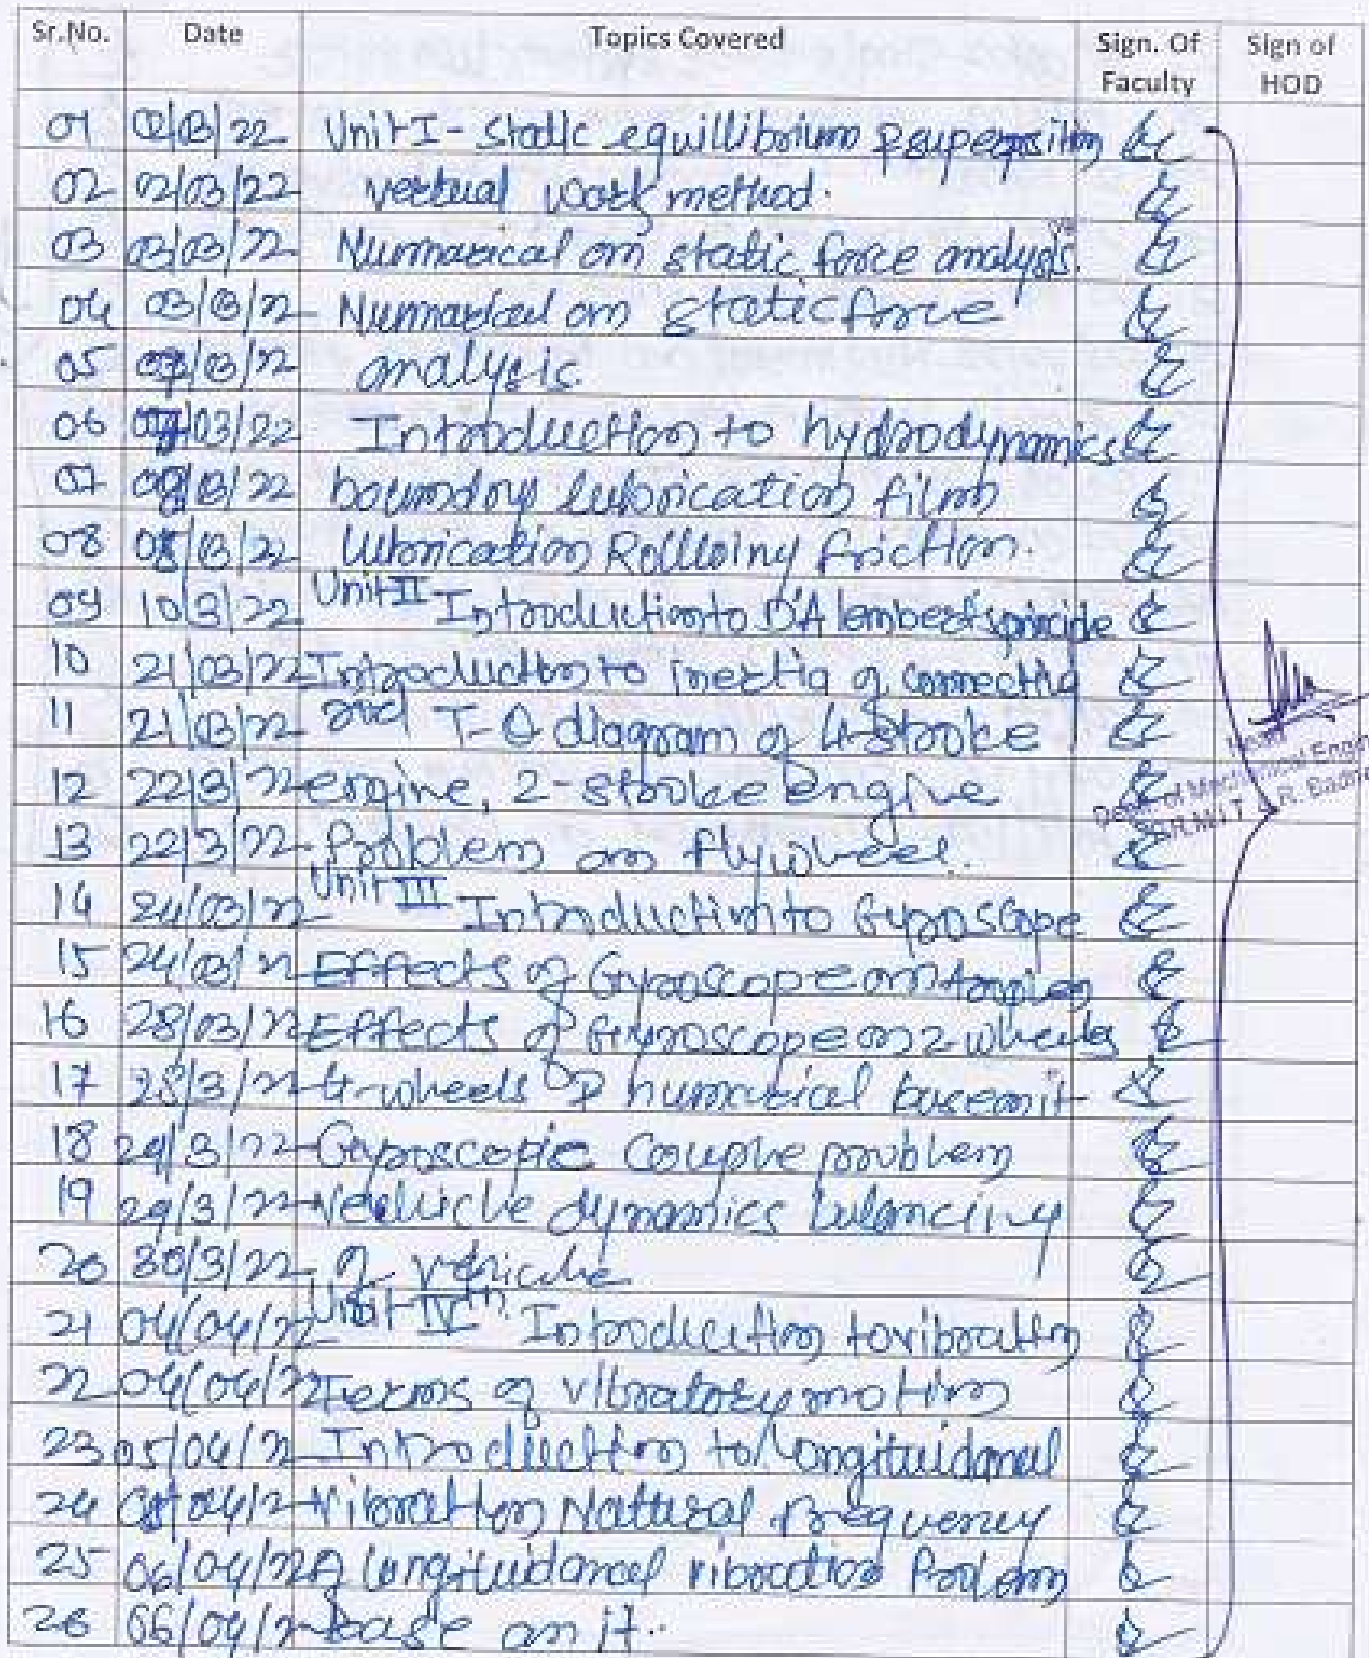 Sr.No. Date Topics Covered Sign. Of Faculty Sign of HOD
01 02/03/22 Unit I - static equillibrium & superposition
02 02/03/22 vertual work method.
03 03/03/22 Nummarical on static force analysis.
04 03/03/22 Nummarical on static force
05 /03/22 analysis.
06 07/03/22 Introduction to hydrodynamics
07 08/03/22 boundry lubrication film
08 08/03/22 lubrication Rollwiny friction.
09 10/3/22 Unit II Introduction to D'Alembert's principle
10 21/03/22 Introduction to inertia of connecting
11 21/03/22 and T-θ diagram of 4-stroke
12 22/3/22 engine, 2-stroke engine
13 22/3/22 Problem on flywheel.
14 24/03/22 Unit III Introduction to Gyroscope
15 24/03/22 Effects of Gyroscope on
16 28/03/22 Effects of Gyroscope on 2 wheels
17 28/3/22 4-wheels & numarical base on it
18 29/3/22 Gyroscopic Couple problem
19 29/3/22 Vechicle dynamics balancing
20 30/3/22 of vehicle
21 04/04/22 Unit IVth Introduction to vibration
22 04/04/22 Terms of vibratory motion
23 05/04/22 Introduction to longituidanal
24 05/04/22 Vibration Natural frequency
25 06/04/22 of longituidanal vibration Problem
26 06/04/22 base on it.
Head
Dept. of Mechanical Engin